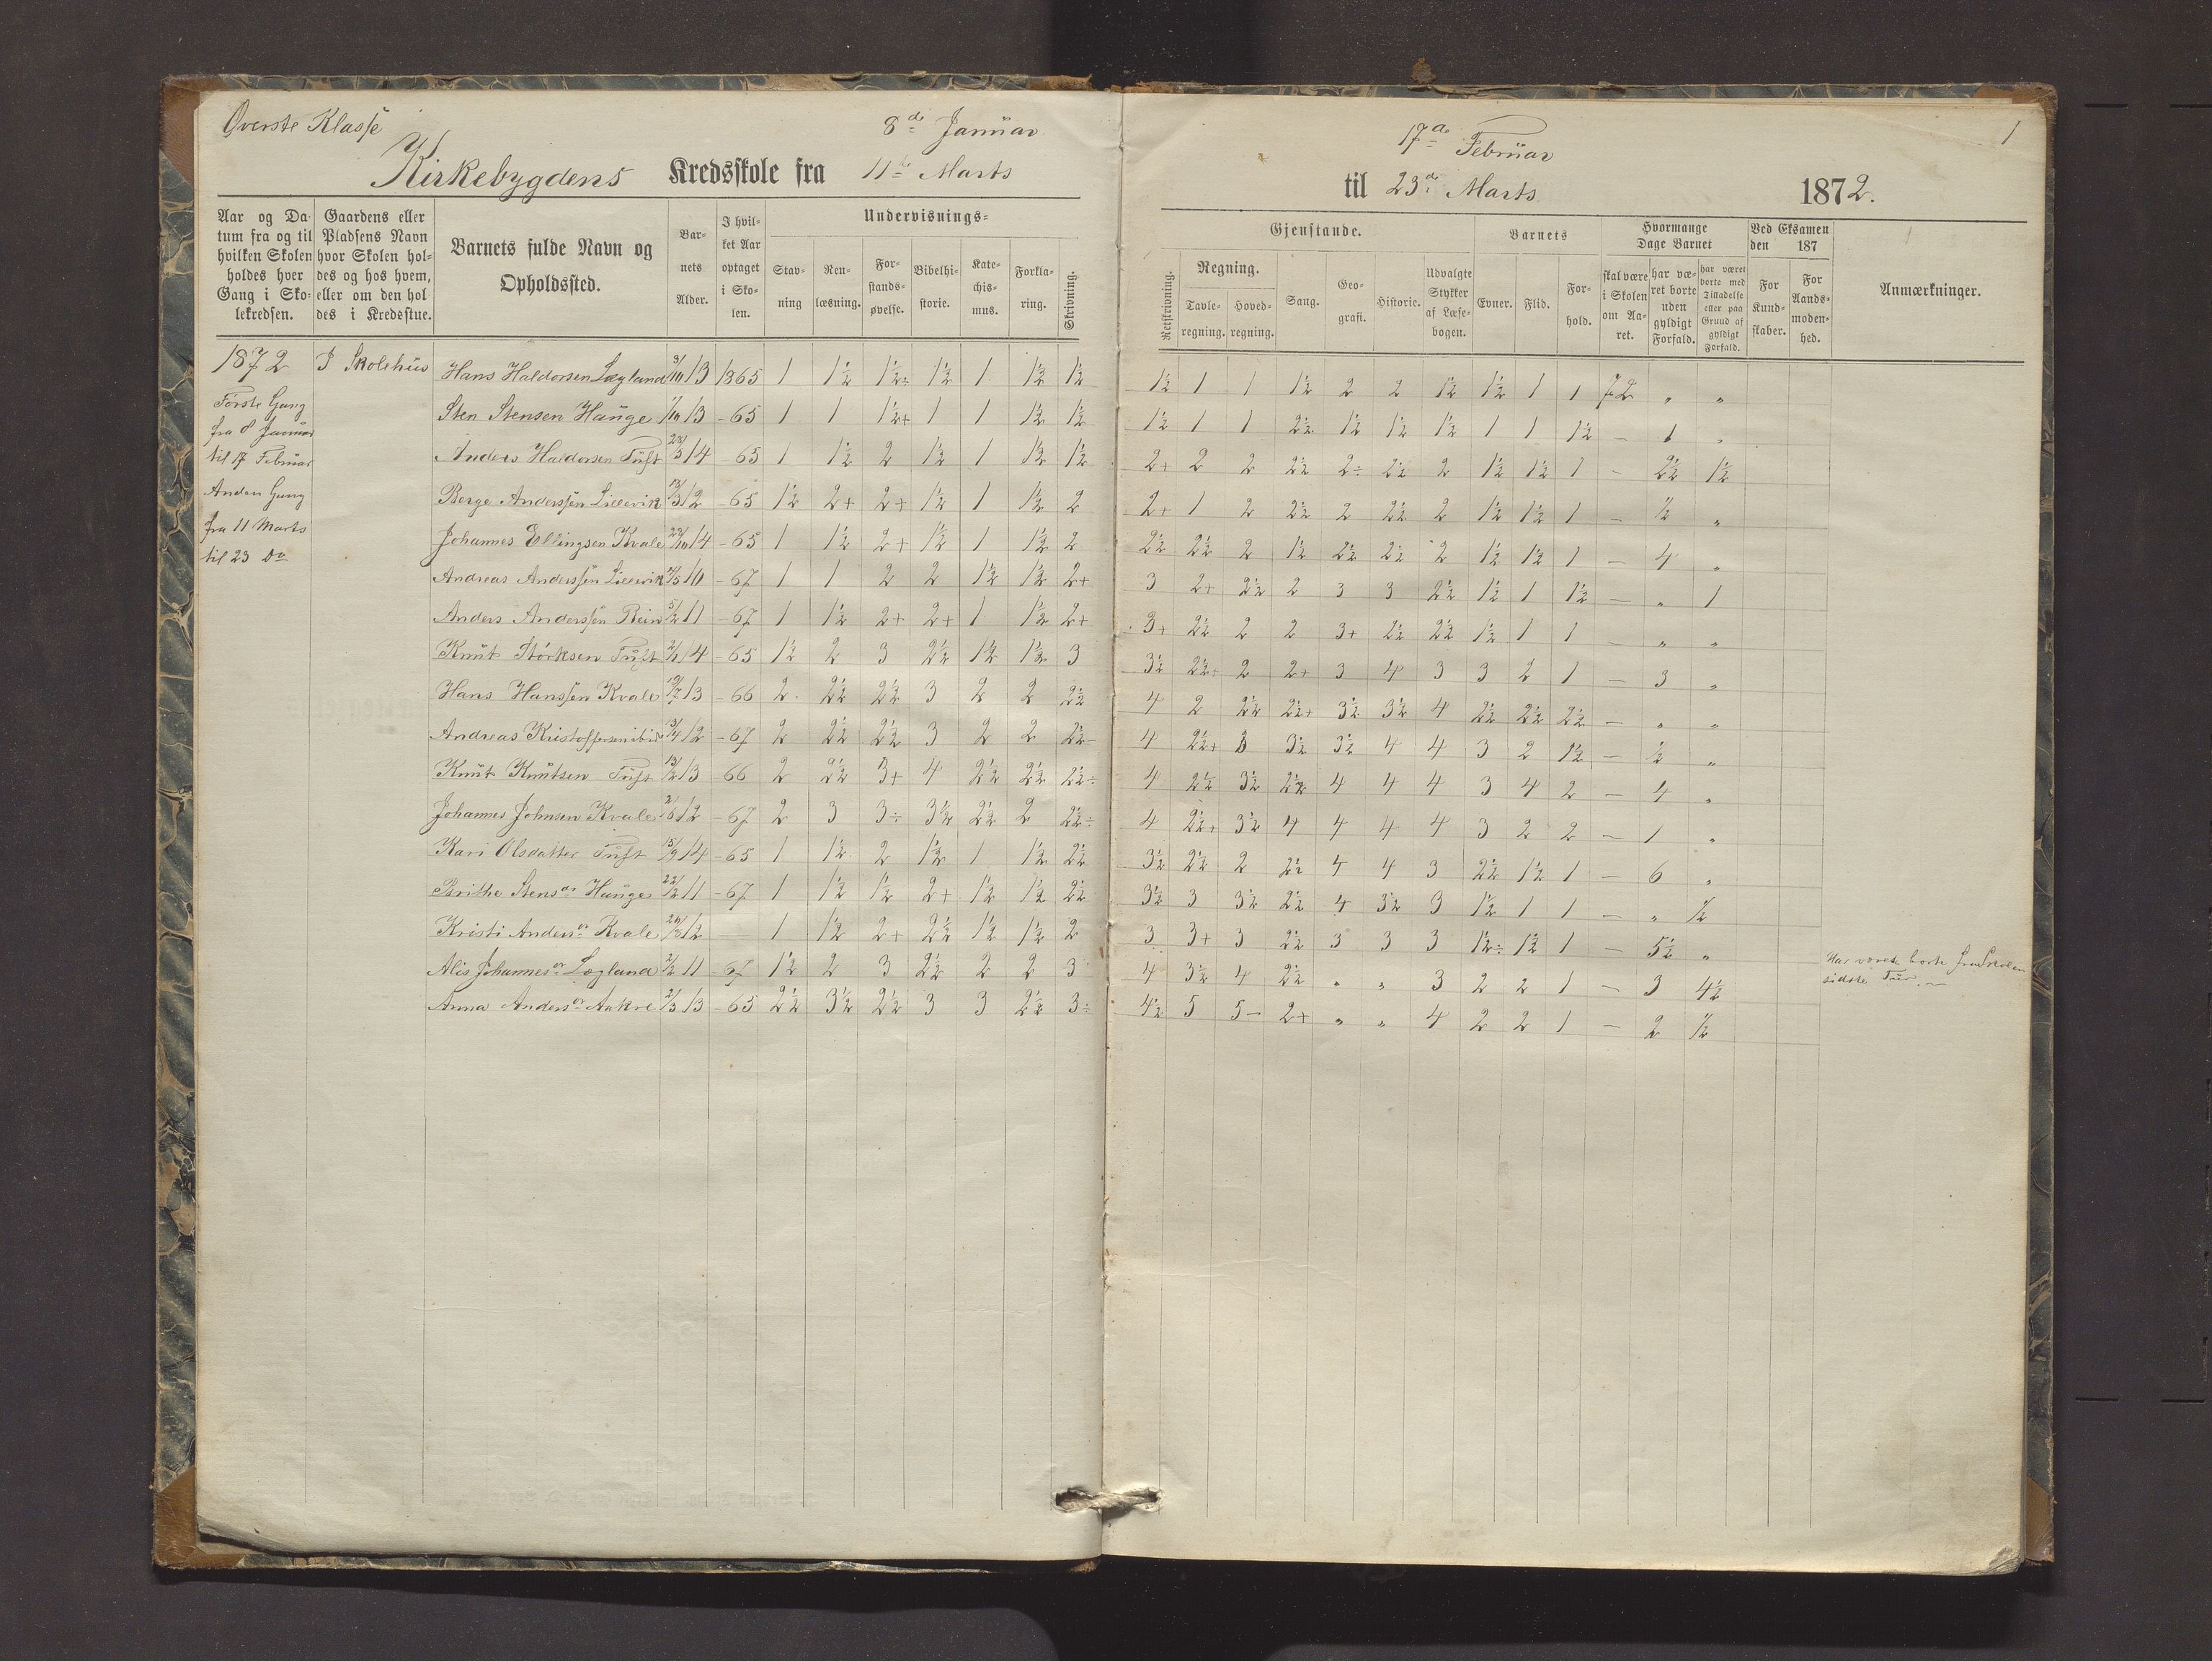 Øverste Klasse
8de Januar
Kirkebygdens Kredsskole fra 11te Marts
17de Februar
1
til 23de Marts 1872.
Aar og Datum fra og til hvilken Skolen holdes hver Gang i Skolekredsen.
Gaardens eller Pladsens Navn hvor Skolen holdes og hos hvem, eller om den holdes i Kredsstue.
Barnets fulde Navn og Opholdssted.
Barnets Alder.
I hvilket Aar optaget i Skolen.
Undervisnings-
Stavning
Renlæsning.
Forstandsøvelse.
Bibelhistorie.
Katechismus.
Forklaring.
Skrivning.
Gjenstande.
Retskrivning.
Regning.
Tavleregning.
Hovedregning.
Sang.
Geografi.
Historie.
Udvalgte Stykker af Læsebogen.
Barnets
Evner.
Flid.
Forhold.
Hvormange Dage Barnet
skal være i Skolen om Aaret.
har været borte uden gyldigt Forfald.
har været borte med Tilladelse eller paa Grund af gyldigt Forfald.
Ved Eksamen den 187
For Kundskaber.
For Aandsmodenhed.
Anmærkninger.
1872
I Skolehus
Første Gang
fra 8 Januar
til 17 Februar
Anden Gang
fra 11 Marts
til 23 Do
Hans Haldorsen Lægland 13 1865 1 1½ 1½÷ 1½ 1 1½ 1½ 1½ 1 1 1½ 2 2 1½ 1½ 1 1 72 „ „
Sten Stensen Hauge 13 -65 1 1 1½+ 1 1 1½ 1½ 1½ 1 1 2½ 1½ 1½ 1½ 1 1 1½ — 1 „
Anders Haldorsen Tuft 14 -65 1 1½ 2 1½ 1 1½ 1½ 2+ 2 2 2½ 2÷ 2½ 2 1½ 1½ 1 — 2½ 1½
Berge Anderssen Lillevik 12 -65 1½ 2+ 2+ 1½ 1 1½ 2 2+ 1 2 2½ 2 2½ 2 1½ 1½ 1 — ½ „
Johannes Ellingsen Kvale 14 -65 1 1½ 2+ 1½ 1 1½ 2 2½ 2½ 2 1½ 2½ 2½ 2 1½ 1½ 1 — 4 „
Andreas Anderssen Lillevik 10 -67 1 1 2 2 1½ 1½ 2+ 3 2+ 2½ 2 3 3 2½ 1½ 1 1½ — „ 1
Anders Anderssen Rein 5/2 11 -67 1 1½ 2+ 2+ 1 1½ 2+ 3+ 2½ 2 2 3+ 2½ 2½ 1½ 1 1 — „ „
Knut Størksen Tuft 14 -65 1½ 2 3 2½ 1½ 1½ 3 3½ 2½+ 2 2+ 3 4 3 3 2 1 — 3 „
Hans Hanssen Kvale 13 -66 2 2½ 2½ 3 2 2 2½ 4 2 2½ 2½+ 3½ 3½ 4 2½ 2½ 2½ — „ „
Andreas Kristoffersen ibid 12 -67 2 2½ 2½ 3 2 2 2½- 4 2½+ 3 3½ 3½ 4 4 3 2 1½ — ½ „
Knut Knutsen Tuft 13 -66 2 2½ 3+ 4 2½ 2½ 2½÷ 4 2½ 3½ 2½ 4 4 4 3 4 2 — 4 „
Johannes Johnsen Kvale 12 -67 2 3 3÷ 3½ 2½ 2 2½÷ 4 2½+ 3½ 4 4 4 4 3 2 2 — 1 „
Kari Olsdatter Tuft 15/9 14 -65 1 1½ 2 1½ 1 1½ 2½ 3½ 2½ 2 2½ 4 4 3 2½ 1½ 1 — 6 „
Brithe Stensdr Hauge 22/2 11 -67 1 1½ 1½ 2+ 1½ 1½ 2½ 3½ 3 3½ 2½ 4 3½ 3 1½ 1 1 — „ ½
Kristi Andersdr Kvale 12 — 1 1½ 2+ 2½ 1½ 1½ 2 3 3+ 3 2½ 3 3 3 1½÷ 1½ 1 — 5½ „
Alis Johannesdr Lægland 2/2 11 -67 1½ 2 3 2½ 2 2 3 4 3½ 4 2½ „ „ 3 2 2 1 — 3 4½ Har været borte fra Skolen
sidste Tur.—
Anna Andersdr Aakre 2/3 13 -65 2½ 3½ 2½ 3 3 2½ 3÷ 4½ 5 5- 2+ „ „ 4 2 2 1 — 2 ½